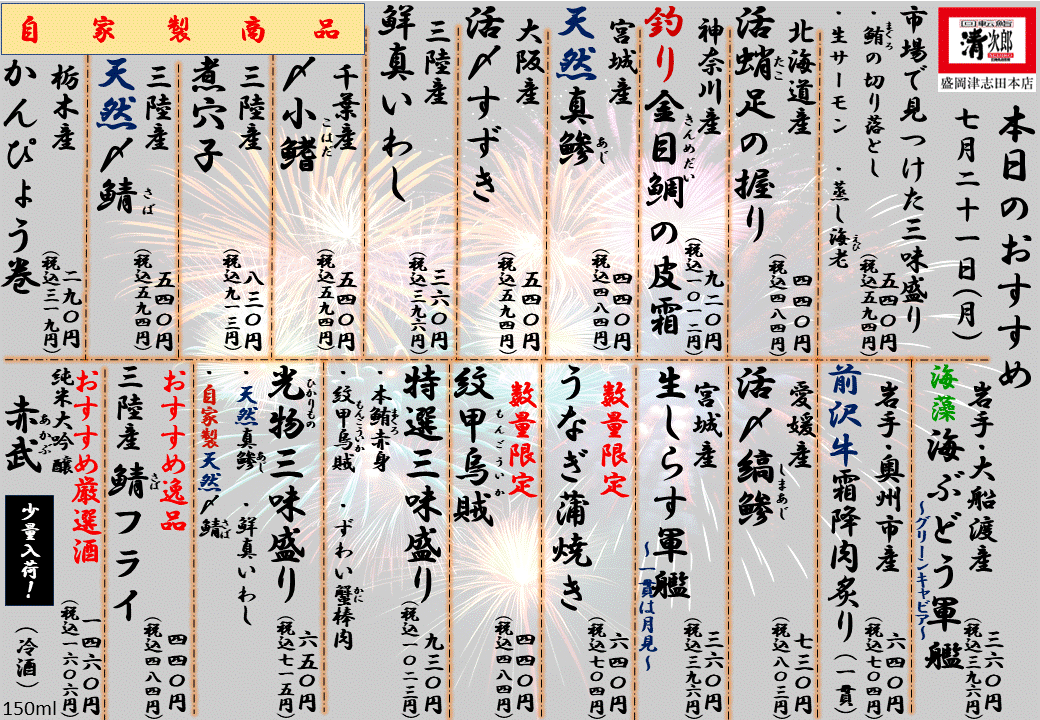 回転鮨
清次郎
盛岡津志田本店
本日のおすすめ
七月二十一日(月)
市場で見つけた三味盛り
・鮪の切り落とし
まぐろ
・生サーモン ・蒸し海老
えび
五四〇円
(税込五九四円)
北海道産
活蛸足の握り
たこ
四四〇円
(税込四八四円)
神奈川産
釣り金目鯛の皮霜
きんめだい
九二〇円
(税込一〇一二円)
宮城産
天然真鯵
あじ
四四〇円
(税込四八四円)
大阪産
活〆すずき
五四〇円
(税込五九四円)
三陸産
鮮真いわし
三六〇円
(税込三九六円)
自家製商品
千葉産
〆小鰭
こはだ
五四〇円
(税込五九四円)
三陸産
煮穴子
八三〇円
(税込九一三円)
三陸産
天然〆鯖
さば
五四〇円
(税込五九四円)
栃木産
かんぴょう巻
二九〇円
(税込三一九円)
岩手・大船渡産
海藻海ぶどう軍艦
~グリーンキャビア~
三六〇円
(税込三九六円)
岩手・奥州市産
前沢牛霜降肉炙り(一貫)
六四〇円
(税込七〇四円)
愛媛産
活〆縞鯵
しまあじ
七三〇円
(税込八〇三円)
宮城産
生しらす軍艦
~一貫は月見~
三六〇円
(税込三九六円)
数量限定
うなぎ蒲焼き
六四〇円
(税込七〇四円)
数量限定
紋甲烏賊
もんごういか
四四〇円
(税込四八四円)
特選三味盛り
・本鮪赤身
まぐろ
・紋甲烏賊 ・ずわい蟹棒肉
もんごういか
かに
九三〇円
(税込一〇二三円)
光物三味盛り
ひかりもの
・天然真鯵 ・鮮真いわし
あじ
・自家製天然〆鯖
さば
六五〇円
(税込七一五円)
おすすめ逸品
三陸産 鯖フライ
さば
四四〇円
(税込四八四円)
おすすめ厳選酒
純米大吟醸
赤武
あかぶ
少量入荷!
(冷酒)
一四六〇円
(税込一六〇六円)
150ml